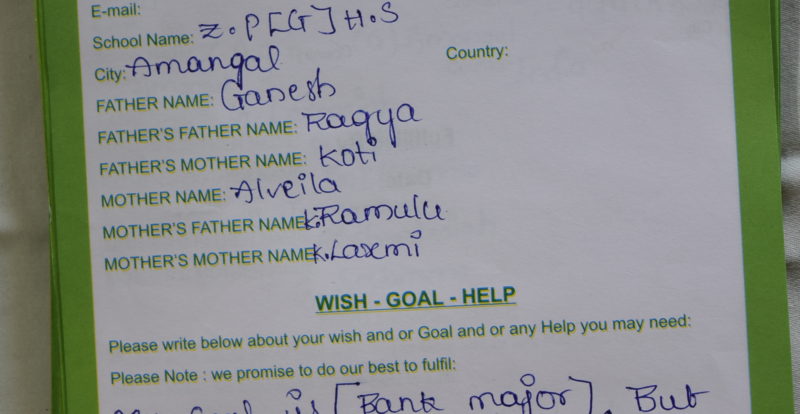 E-mail:
School Name: Z.P[G]H.S
City: Amangal Country:
FATHER NAME: Ganesh
FATHER'S FATHER NAME: Ragya
FATHER'S MOTHER NAME: Koti
MOTHER NAME: Alveila
MOTHER'S FATHER NAME K.Ramulu
MOTHER'S MOTHER NAME K.Laxmi
WISH - GOAL - HELP
Please write below about your wish and or Goal and or any Help you may need:
Please Note : we promise to do our best to fulfil:
is [Bank major]. But